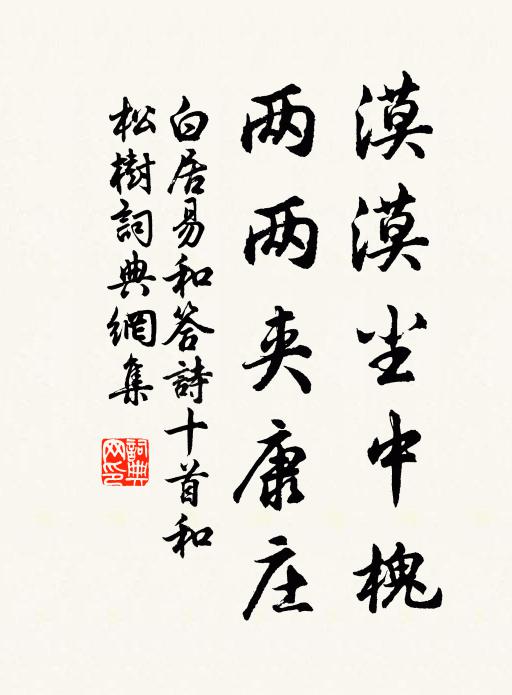 漠漠尘中槐
两两夹康庄
白居易和答詩十首和
松樹詞典網集
詞典
网印